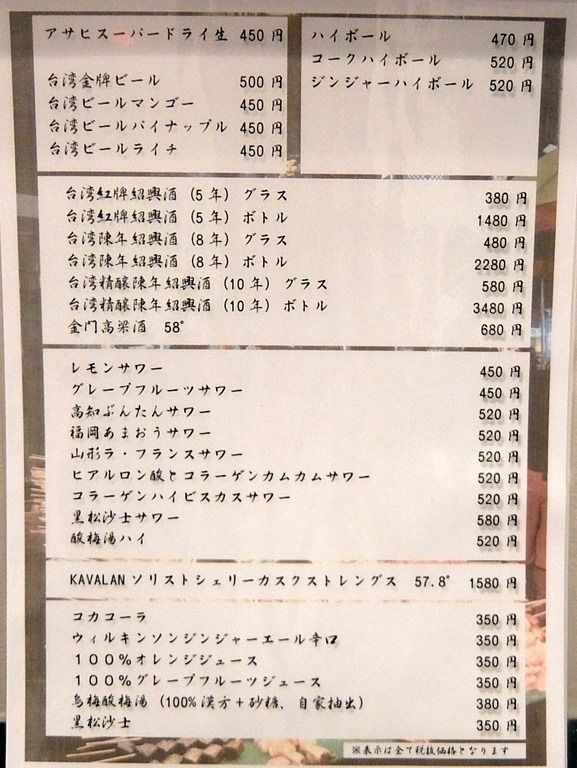 アサヒスーパードライ生 450 円
台湾金牌ビール 500 円
台湾ビールマンゴー 450 円
台湾ビールパイナップル 450 円
台湾ビールライチ 450 円
ハイボール 470 円
コークハイボール 520 円
ジンジャーハイボール 520 円
台湾紅牌紹興酒 (5 年) グラス 380 円
台湾紅牌紹興酒 (5 年) ボトル 1480 円
台湾陳年紹興酒 (8 年) グラス 480 円
台湾陳年紹興酒 (8 年) ボトル 2280 円
台湾精醸陳年紹興酒 (10 年) グラス 580 円
台湾精醸陳年紹興酒 (10 年) ボトル 3480 円
金門高粱酒 58° 680 円
レモンサワー 450 円
グレープフルーツサワー 450 円
高知ぶんたんサワー 520 円
福岡あまおうサワー 520 円
山形ラ・フランスサワー 520 円
ヒアルロン酸とコラーゲンカムカムサワー 520 円
コラーゲンハイビスカスサワー 520 円
黒松沙士サワー 580 円
酸梅湯ハイ 520 円
KAVALAN ソリストシェリーカスクストレングス 57.8° 1580 円
コカコーラ 350 円
ウィルキンソンジンジャーエール辛口 350 円
100%オレンジジュース 350 円
100%グレープフルーツジュース 350 円
烏梅酸梅湯 (100% 漢方+砂糖、自家抽出) 380 円
黒松沙士 350 円
※表示は全て税抜価格となります